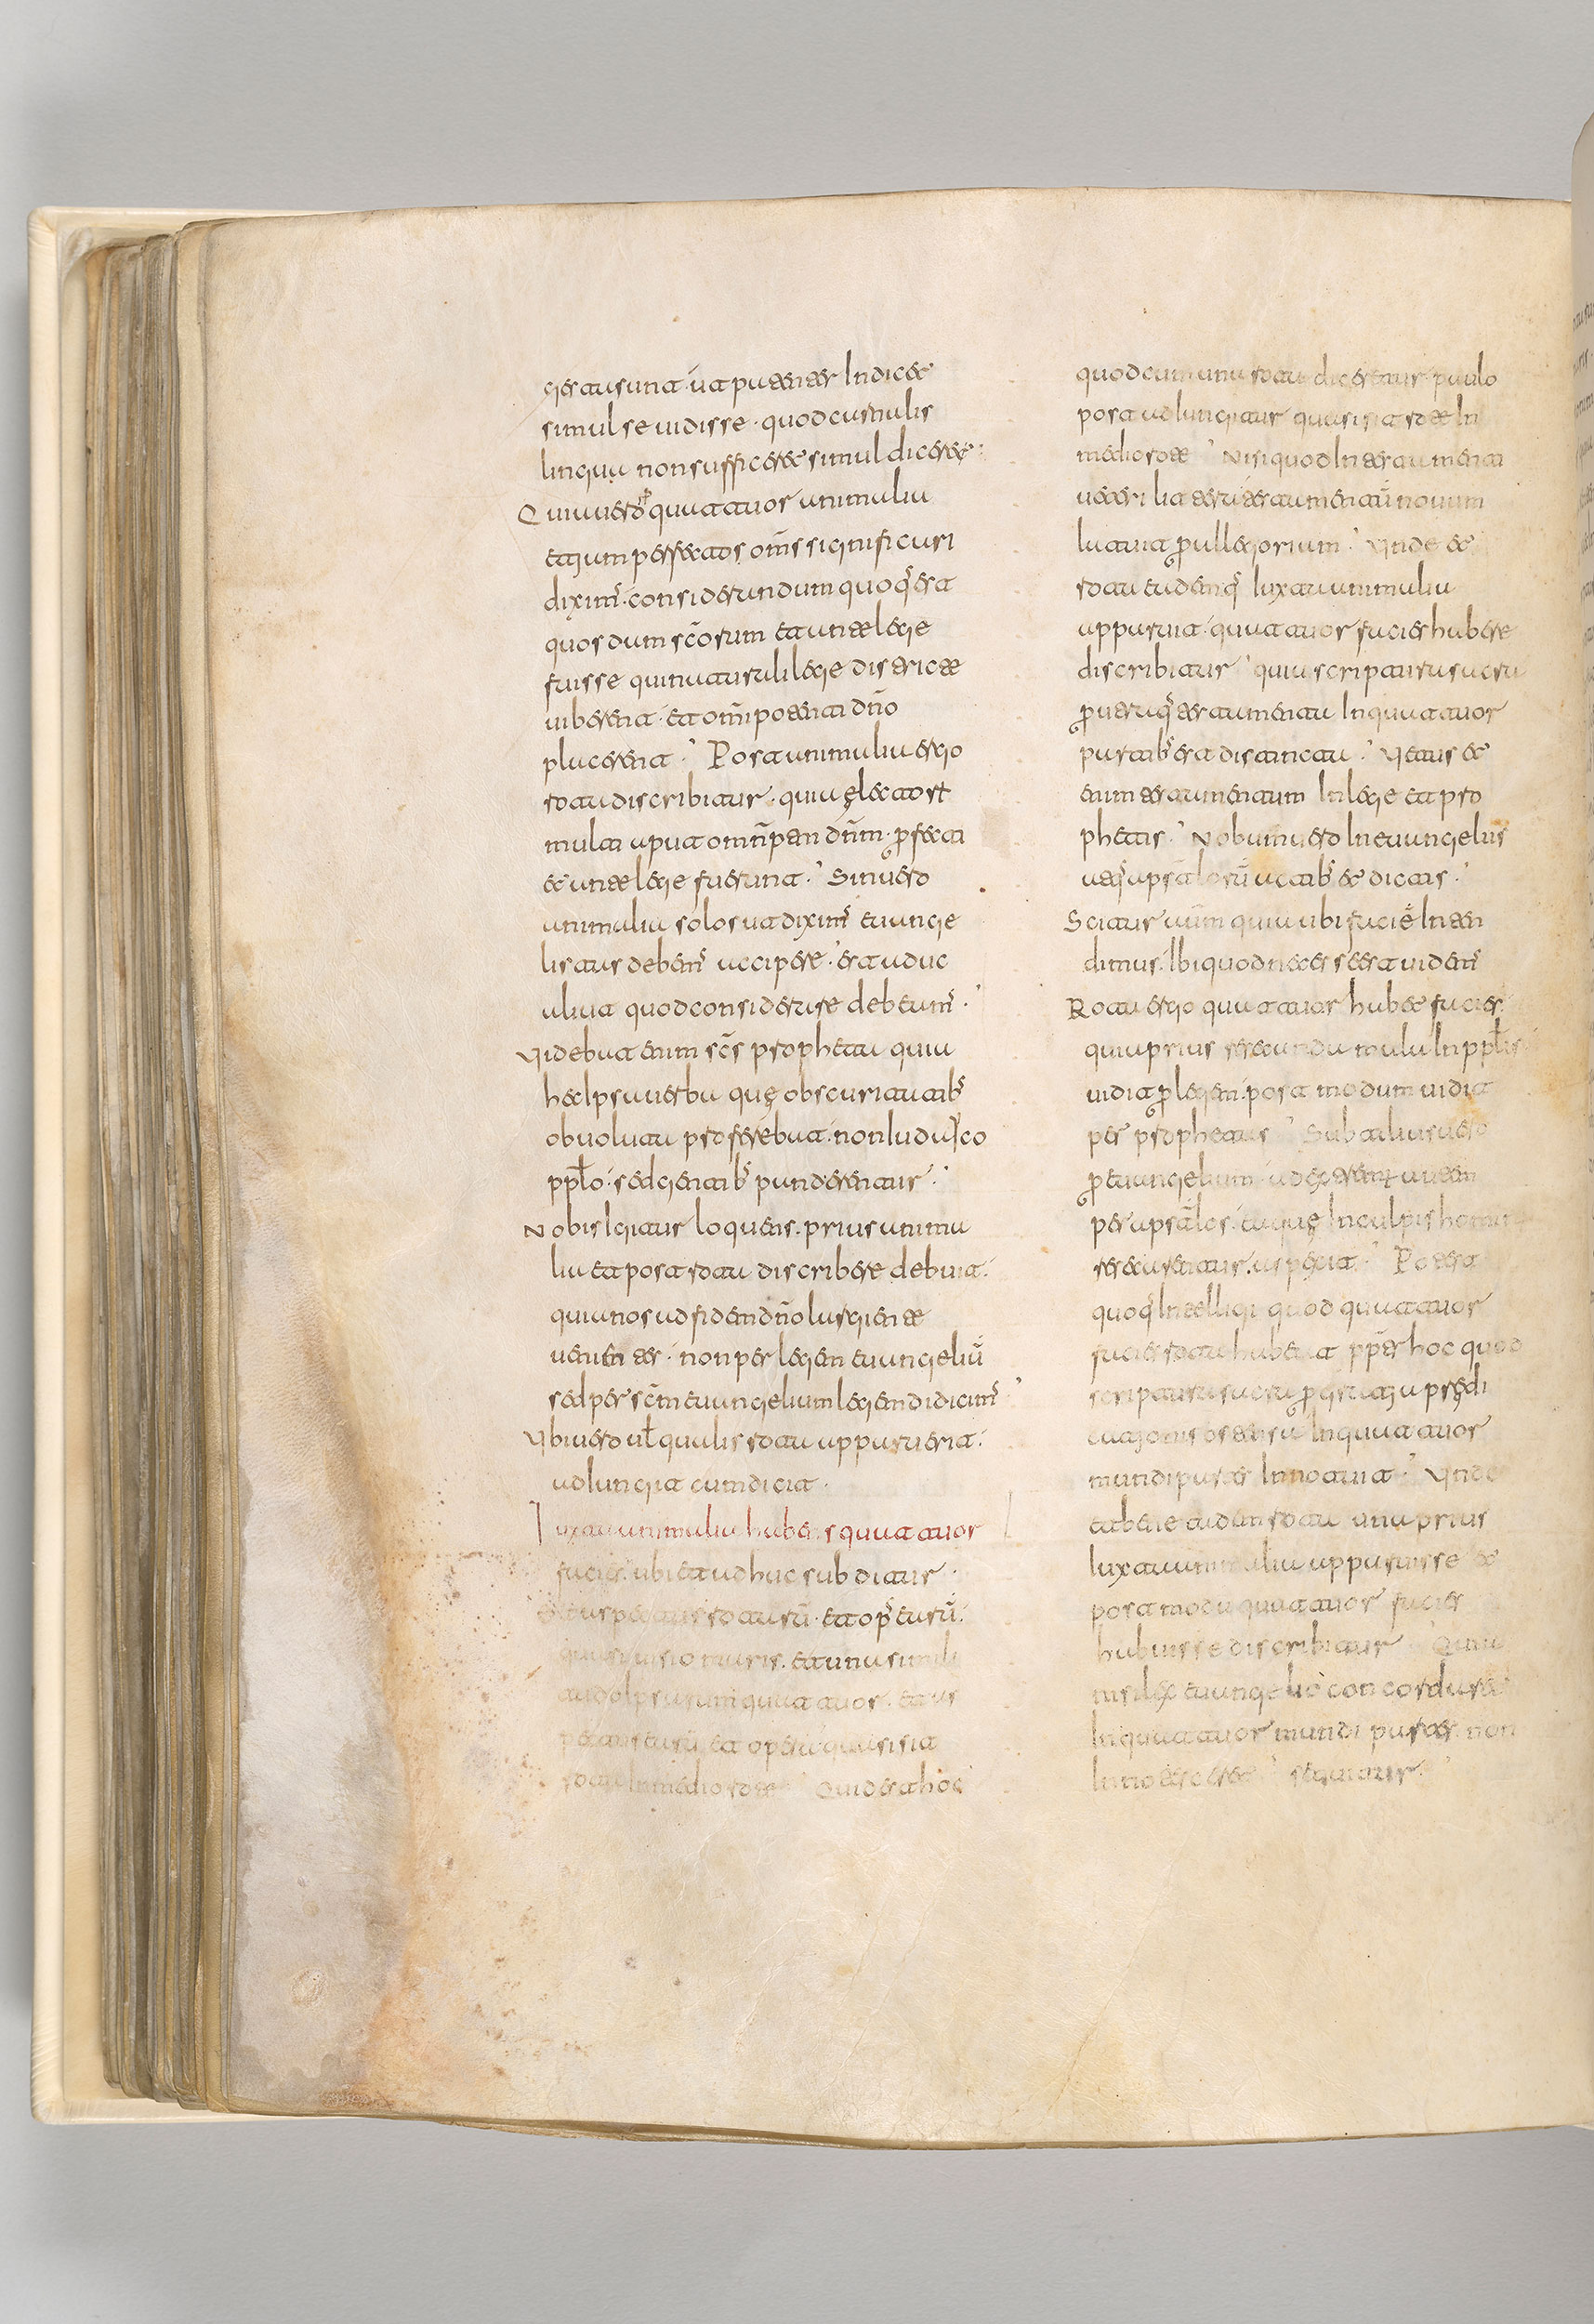 geras sunt · ut patenter Indicet
simul se uidisse · quod carnalis
lingua non sufficeret simul diceret·
Quia uero p̄ quattuor animalia
etiam perfectos om̄s significari
dixim̄· considerandum quoq̄ est
quosdam sc̄orum et ante lege
fuisse qui naturali lege districte
uiberent · et omnipotenti dn̄o
placerent · Post animalia ergo
rota discribitur · quia electorum
multi aput omn̄ptem dn̄m · perfecti
et ante lege fuerunt · Sin uero
animalia solos ut dixim̄ euange
listas debem̄ accipere · est adhuc
aliut quod considerare debeam̄ ·
Videbat enim sc̄s propheta quia
hec Ipsa uerba que obscuritatib̄
obuoluta proferebat · non Iudayco
pplo · sed gentib̄ panderentur ·
Nobis Igitur loquens · prius anima
lia et post rota discribere debuit ·
quia nos ad fidem dn̄o largiente
uenientes · non per legem euangeliū
sed per sc̄m euangelium legem didicim̄
Vbi uero uel qualis rota apparuerit ·
adIungit cum dicit ·
Iuxta animalia habens quattuor
facies · ubi et adhuc subditur ·
Et aspectus rotarū · et op̄ earū ·
quasi uisio maris · et una simili
tudo Ipsarum quattuor · et as
pectus earū et opera quasi sit
rota In medio rote · Quid est hoc
quod cum una rota diceretur paulo
post adIungitur quasi sit rota In
medio rote · Nisi quod In testamenti
ueteri littera testamentū nouum
latuit per allegorium · Vnde et
rota eadem q̄ Iuxta animalia
apparuit · quattuor facies habere
discribitur · quia scriptura sacra
per utraq̄ testamenta In quattuor
partib̄ est distincta · Vetus et
enim testamentum In lege et pro
phetis · Nobum uero In euangeliis
atq̄ apsālorū actib̄ et dictis ·
Scitur autem quia ubi facie Inten
dimus · Ibi quod necesse est uidem̄
Rota ergo quattuor habet facies ·
quia prius resecanda mala In pplis
uidit per legem · post modum uidit
per prophetas · Subtilius uero
per euangelium · ad extremum autem
per apsālos · ea que In culpis hominum
resecarentur · aspexit · Potest
quoq̄ Intelligi quod quattuor
facies rota habeat pp̄ter hoc quod
scriptura sacra per gratia predi
cationis ostensa In quattuor
mundi partes Innotuit · Vnde
et bene eadem rota una prius
Iuxta animalia apparuisse et
post modu quattuor facies
habuisse discribitur · Quia
nisi lex euangelio concordaret
In quattuor mundi partes non
Innotesceret · sequitur ·